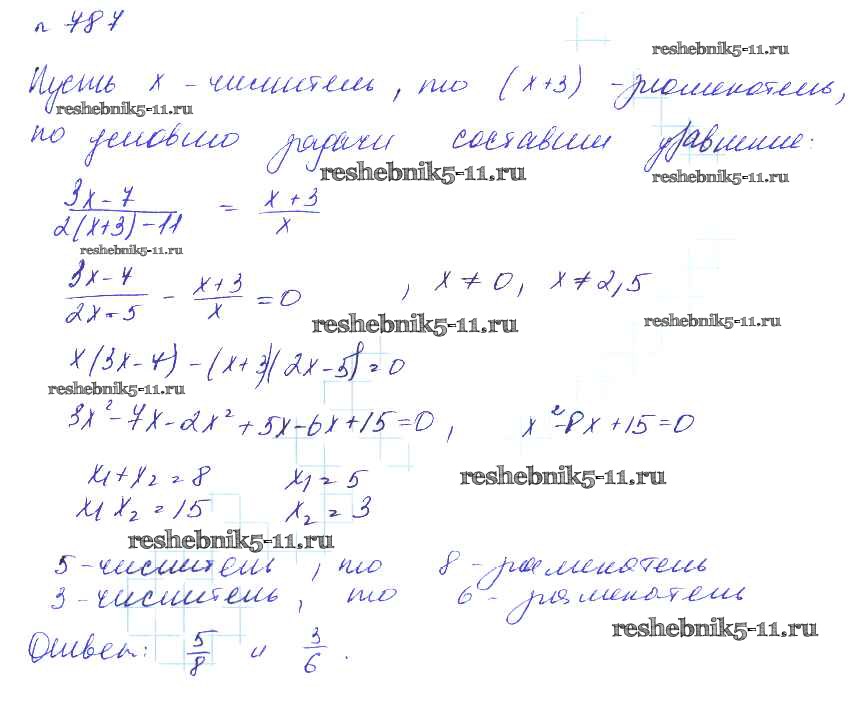 n 787
reshebnik5-11.ru
Пусть x - числитель, то (x+3) - знаменатель,
reshebnik5-11.ru
по условию задачи составим уравнение:
reshebnik5-11.ru
reshebnik5-11.ru
(3x-7)/(2(x+3)-11) = (x+3)/x
reshebnik5-11.ru
(3x-7)/(2x-5) - (x+3)/x = 0 , x≠0, x≠2,5
reshebnik5-11.ru
reshebnik5-11.ru
x(3x-7)-(x+3)(2x-5)=0
reshebnik5-11.ru
3x²-7x-2x²+5x-6x+15=0, x²-8x+15=0
x₁+x₂=8 x₁=5
reshebnik5-11.ru
x₁x₂=15 x₂=3
reshebnik5-11.ru
5-числитель, то 8-знаменатель
3-числитель, то 6-знаменатель
reshebnik5-11.ru
Ответ: 5/8 и 3/6.